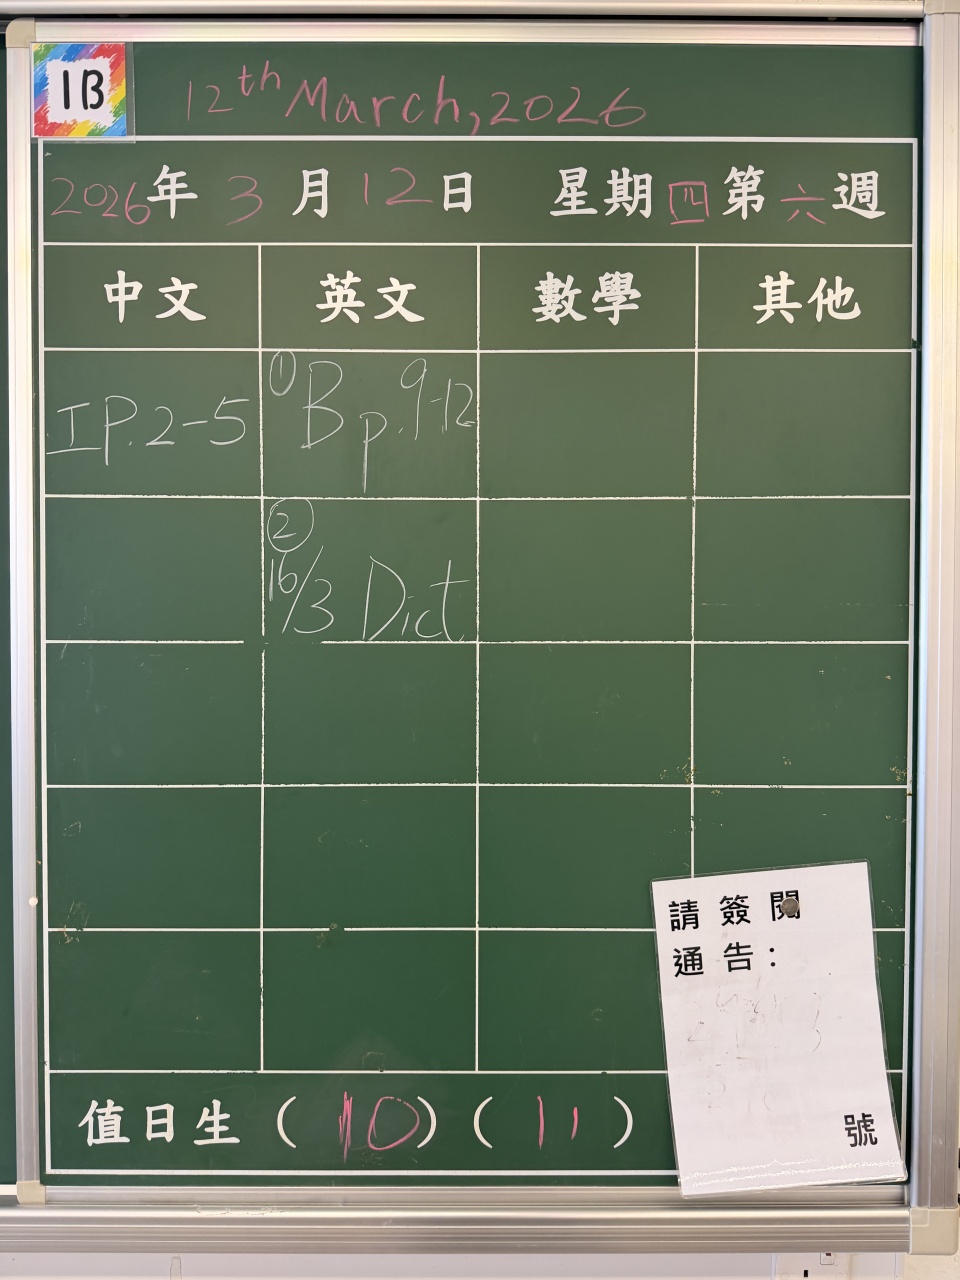 1B
12th March, 2026
2026年 3 月 12 日 星期四 第六週
中文 英文 數學 其他
工P.2-5
① B p.9-12
②
16/3 Dict.
請簽閱
通告：
號
值日生 ( 10 ) ( 11 )